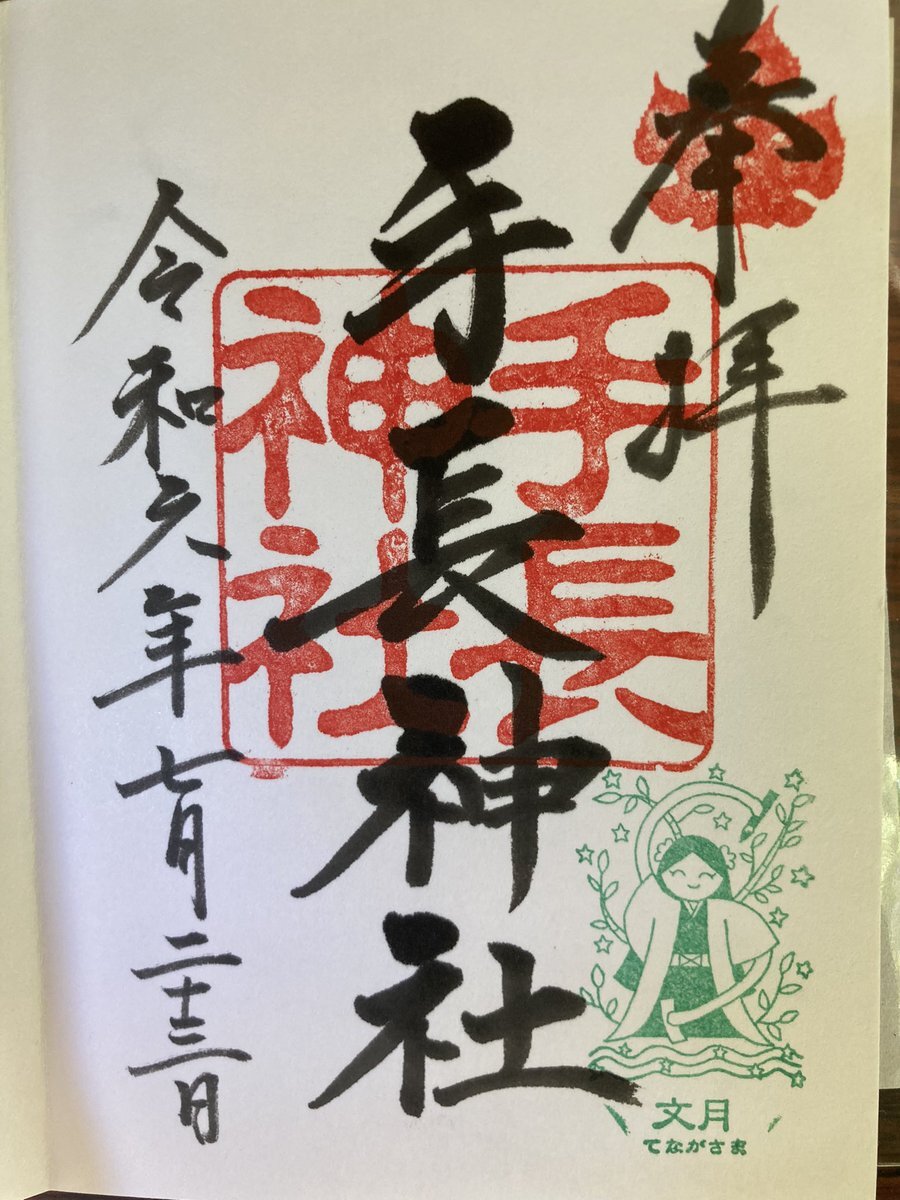 奉拝
手長神社
手長
神社
令和元年七月二十三日
文月
てながさま